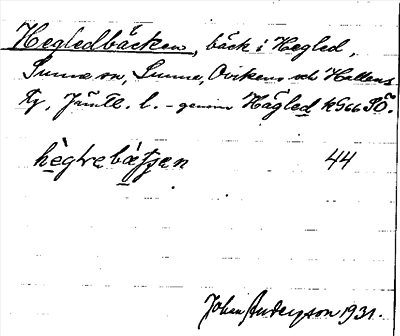 Hegledbäcken, bäck i Hegled,
Sunne sn, Sunne, Ovikens och Hallens
tg, Jämtl. l. – genom Hägled k566 SÖ.
hègtrebàʃʃen 44
Johan Anderson 1931.